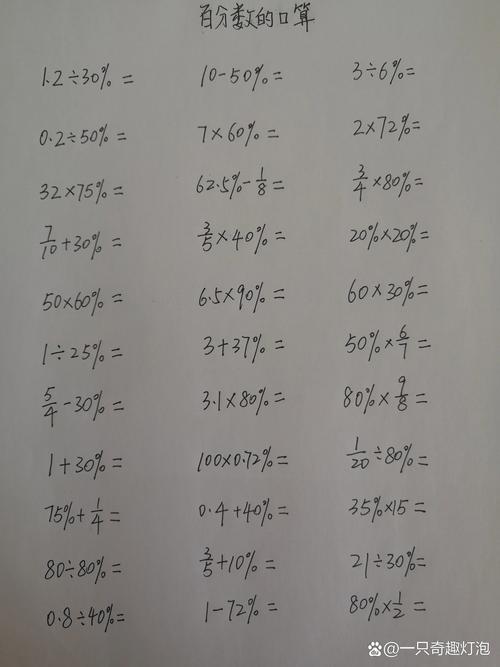 百分数的口算
1.2÷30%= 10-50%= 3÷6%=
0.2÷50%= 7×60%= 2×72%=
32×75%= 62.5%-1/8= 3/4×80%=
7/10+30%= 3/5×40%= 20%×20%=
50×60%= 6.5×90%= 60×30%=
1÷25%= 3+37%= 50%×6/7=
5/4-30%= 3.1×80%= 80%×9/8=
1+30%= 100×0.72%= 1/20÷80%=
75%+1/4= 0.4+40%= 35%×15=
80÷80%= 3/5+10%= 21÷30%=
0.8÷40%= 1-72%= 80%×1/2=
@一只奇趣灯泡